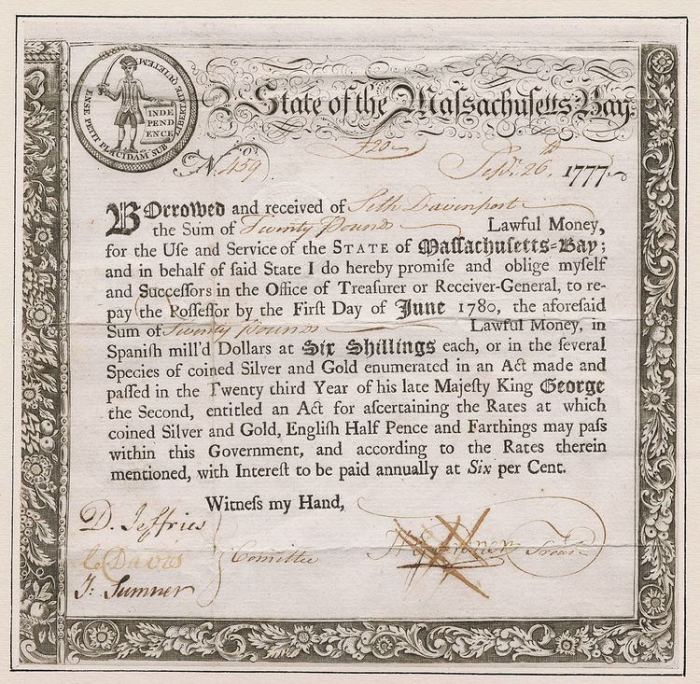 ENSE PETIT PLACIDAM SUB LIBERTATE QUIETEM
INDE
PEND
ENCE
State of the Maſsachuſetts Bay.
£20
No. 4159
Sept. 26th. 1777.
BOrrowed and received of Seth Davenport
the Sum of Twenty Pounds Lawful Money,
for the Uſe and Service of the STATE of Maſſachuſetts-Bay;
and in behalf of ſaid State I do hereby promiſe and oblige myſelf
and Succeſſors in the Office of Treaſurer or Receiver-General, to re-
pay the Poſſeſſor by the Firſt Day of June 1780, the aforeſaid
Sum of Twenty Pounds Lawful Money, in
Spaniſh mill'd Dollars at Six Shillings each, or in the ſeveral
Species of coined Silver and Gold enumerated in an Act made and
paſſed in the Twenty third Year of his late Majeſty King George
the Second, entitled an Act for aſcertaining the Rates at which
coined Silver and Gold, Engliſh Half Pence and Farthings may paſs
within this Government, and according to the Rates therein
mentioned, with Intereſt to be paid annually at Six per Cent.
Witneſs my Hand,
D. Jeffries
Davis
J: Sumner
Comittee
H Gardner Treasr